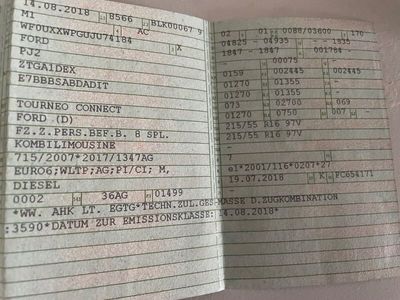 14.08.2018 8566 BLK00067 9
M1 AC
WF0UXXWPGUJU74184 X
FORD
PJ2
ZTGA1DEX
E7BBBSABDADIT
TOURNEO CONNECT
FORD (D)
FZ.Z.PERS.BEF.B. 8 SPL.
KOMBILIMOUSINE
715/2007*2017/1347AG
EURO6;WLTP;AG;PI/CI; M,
DIESEL
0002 36AG 01499
*WW. AHK LT. EGTG*TECHN.ZUL.GES-MASSE D.ZUGKOMBINATION
:3590*DATUM ZUR EMISSIONSKLASSE:14.08.2018*
02 01 0088/03600 170
04825 - 04935 - - 1835
1847 - 1847 001784 -
00075
0159 002445 002445
01270 01355 -
01270 01355 -
073 02700 069
01270 0750 007 -
215/55 R16 97V
215/55 R16 97V
-
7
e1*2001/116*0207*27
19.07.2018 K FC654171